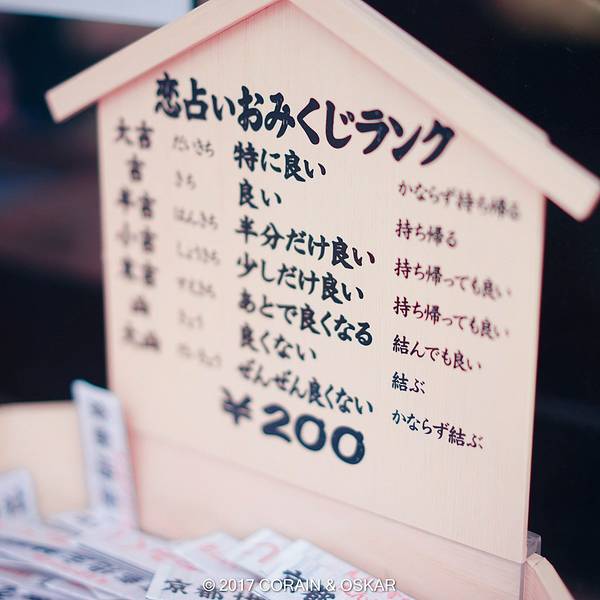 恋占いおみくじランク
大吉 だいきち 特に良い かならず持ち帰る
吉 きち 良い 持ち帰る
半吉 はんきち 半分だけ良い 持ち帰っても良い
小吉 しょうきち 少しだけ良い 持ち帰っても良い
末吉 すえきち あとで良くなる 結んでも良い
凶 きょう 良くない 結ぶ
大凶 だいきょう ぜんぜん良くない かならず結ぶ
¥200
京都
© 2017 CORAIN & OSKAR